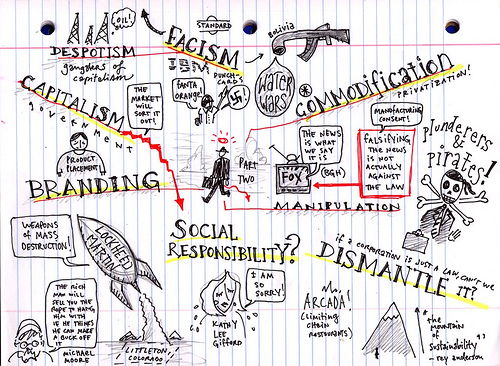 OIL!
DESPOTISM
gangsters of
capitalism
FACISM
STANDARD
IBM
PUNCH-
CARDS
FANTA
ORANGE!
BOLIVIA
WATER
WARS
COMMODIFICATION
PRIVATIZATION!
CAPITALISM
government
THE
MARKET
WILL
SORT IT
OUT!
PRODUCT
PLACEMENT
BRANDING
PART
TWO
THE NEWS
IS WHAT
WE SAY
IT IS
(BGH)
FOX
MANUFACTURING
CONSENT!
FALSIFYING
THE NEWS
IS NOT
ACTUALLY
AGAINST
THE LAW
MANIPULATION
plunderers
&
pirates!
WEAPONS
OF MASS
DESTRUCTION!
LOCKHEED
MARTIN
LITTLETON
COLORADO
THE RICH
MAN WILL
SELL YOU THE
ROPE TO HANG
HIM WITH
IF HE THINKS
HE CAN MAKE
A BUCK OFF
IT
MICHAEL
MOORE
SOCIAL
RESPONSIBILITY?
I AM
SO
SORRY!
KATHY
LEE
Gifford
if a corporation is just a law, can't we
DISMANTLE IT?
ARCADA!
(limiting
chain
restaurants)
"the
mountain
of
sustainability"
- ray anderson